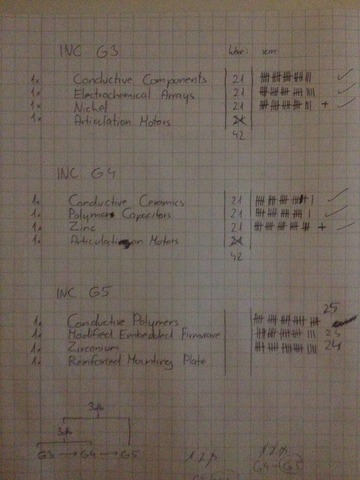 INC G3
1x Conductive Components 21
1x Electrochemical Arrays 21
1x Nickel 21 +
1x Articulation Motors
42
INC G4
1x Conductive Ceramics 21
1x Polymer Capacitors 21
1x Zinc 21 +
1x Articulation Motors
42
INC G5
25
1x Conductive Polymers
1x Modified Embedded Firmware 23
1x Zirconium 24
1x Reinforced Mounting Plate
G3 → G4 → G5
G4 → G5